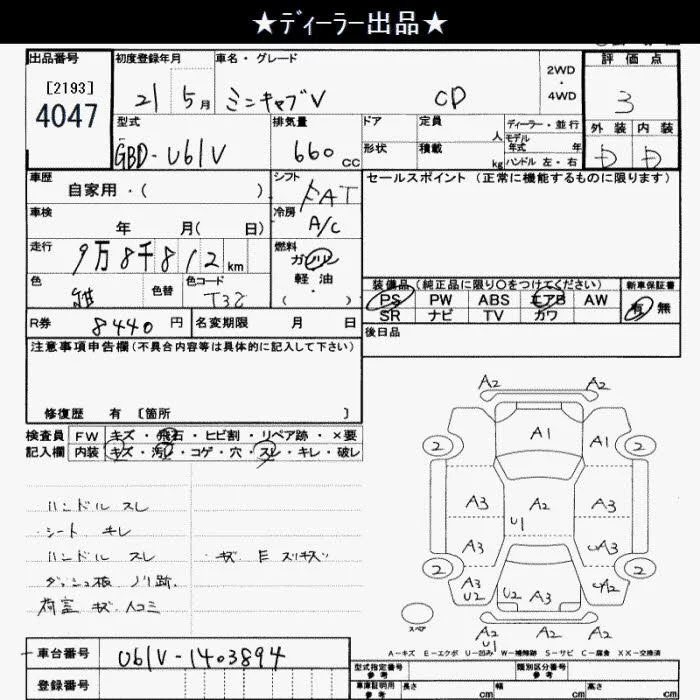 ★ディーラー出品★
出品番号 [2193] 4047
初度登録年月 21 5月
車名・グレード ミニキャブV CD
2WD・4WD
評価点 3
外装 D 内装 D
型式 GBD-U61V
排気量 660cc
ドア 形状
定員 人
積載 kg
ディーラー・並行
モデル年式 年
ハンドル 左・右
車歴 自家用・( )
シフト FAT
セールスポイント(正常に機能するものに限ります)
車検 年 月( 日)
冷房 A/C
走行 9万8千812km
燃料 ガソリン 軽油・( )
色 色替 色コード T32
装備品(純正品に限り〇をつけてください)
新車保証書 有 無
PS PW ABS エアB AW
SR ナビ TV カワ
R券 8440円 名変期限 月 日
後日品
注意事項申告欄(不具合内容等は具体的に記入して下さい)
修復歴 有 [箇所 ]
検査員記入欄
FW キズ・飛石・ヒビ割・リペア跡・×要
内装 キズ・汚レ・コゲ・穴・スレ・キレ・破レ
ハンドル スレ
・シート キレ
ハンドル スレ ・キズ
ダッシュ板 ノリ跡.
荷室 キズ
A2 A2
2 A1 A1 2
A3 A2 U1 A3
A3 A3
2 A3 U2 U2 A3 A2 2
A2 U1 A2
スペア
A-キズ E-エクボ U-凹み W-補修跡 S-サビ C-腐食 XX-交換済
車台番号 U61V-1403894
登録番号
型式指定番号 参考 類別区分番号 参考
車庫証明用 参考 長さ cm 幅 cm 高さ cm